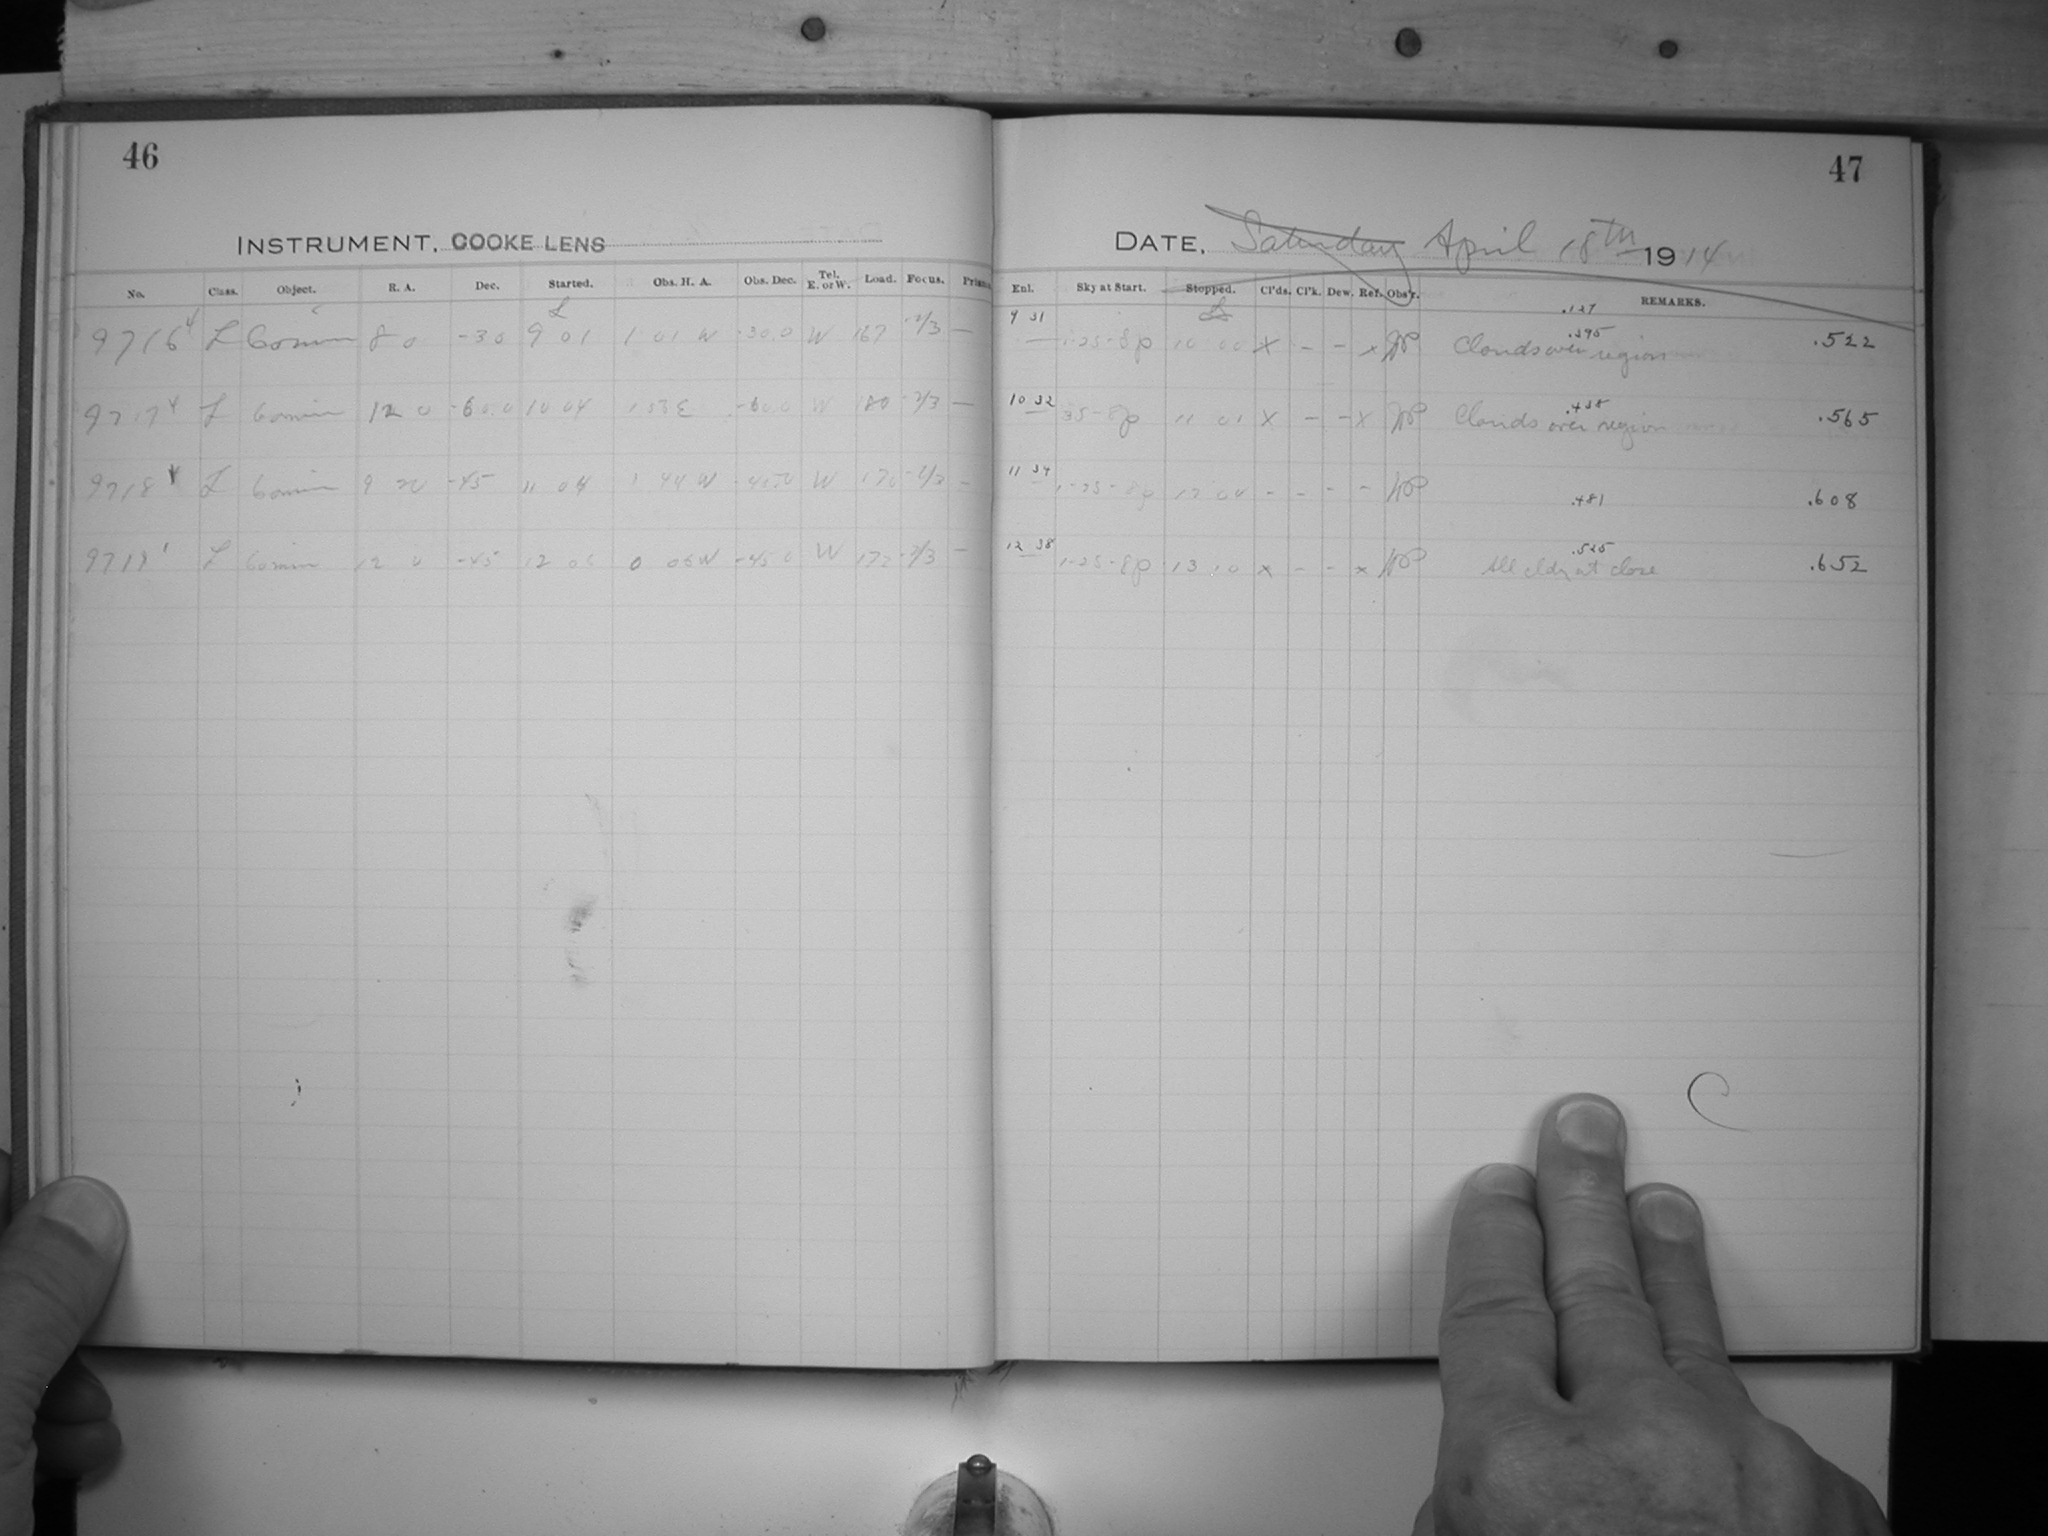 46
INSTRUMENT, COOKE LENS
No. Class. Object. R. A. Dec. Started. Obs. H. A. Obs. Dec. Tel. E. or W. Load. Focus. Prism
9716 L 8 0 -30 9 01 1 01 W -30.0 W 167 -2/3 —
9717 L 12 0 -60.0 10 04 1 53 E -60.0 W 180 -2/3 —
9718 L 9 20 -45 11 04 1 44 W W -2/3 —
9719 L 12 0 -45 12 0 06 W -45 0 W 172 -2/3 —
47
DATE, Saturday April 18th 1914
Enl. Sky at Start. Stopped. Cl'ds. Cl'k. Dew. Ref. Obs'r. REMARKS.
.127
9 31 1-25-8p 10 00 X - - x Clouds over region .395 .522
10 32 35-8p 11 01 X - - X Clouds over region .438 .565
11 34 1-25-8p 12 04 - - - - .481 .608
12 38 1-25-8p 13 10 x - - x All cldy at close .525 .652